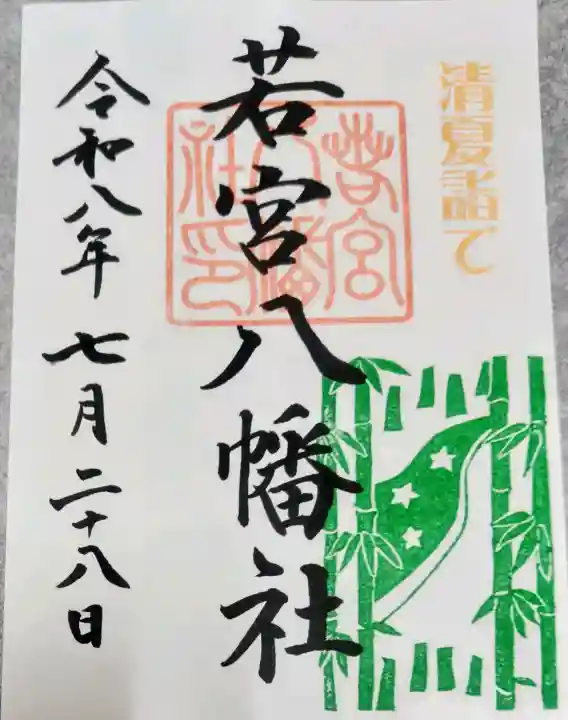 清夏詣で
若宮八幡社
若宮八幡社印
令和八年七月二十八日